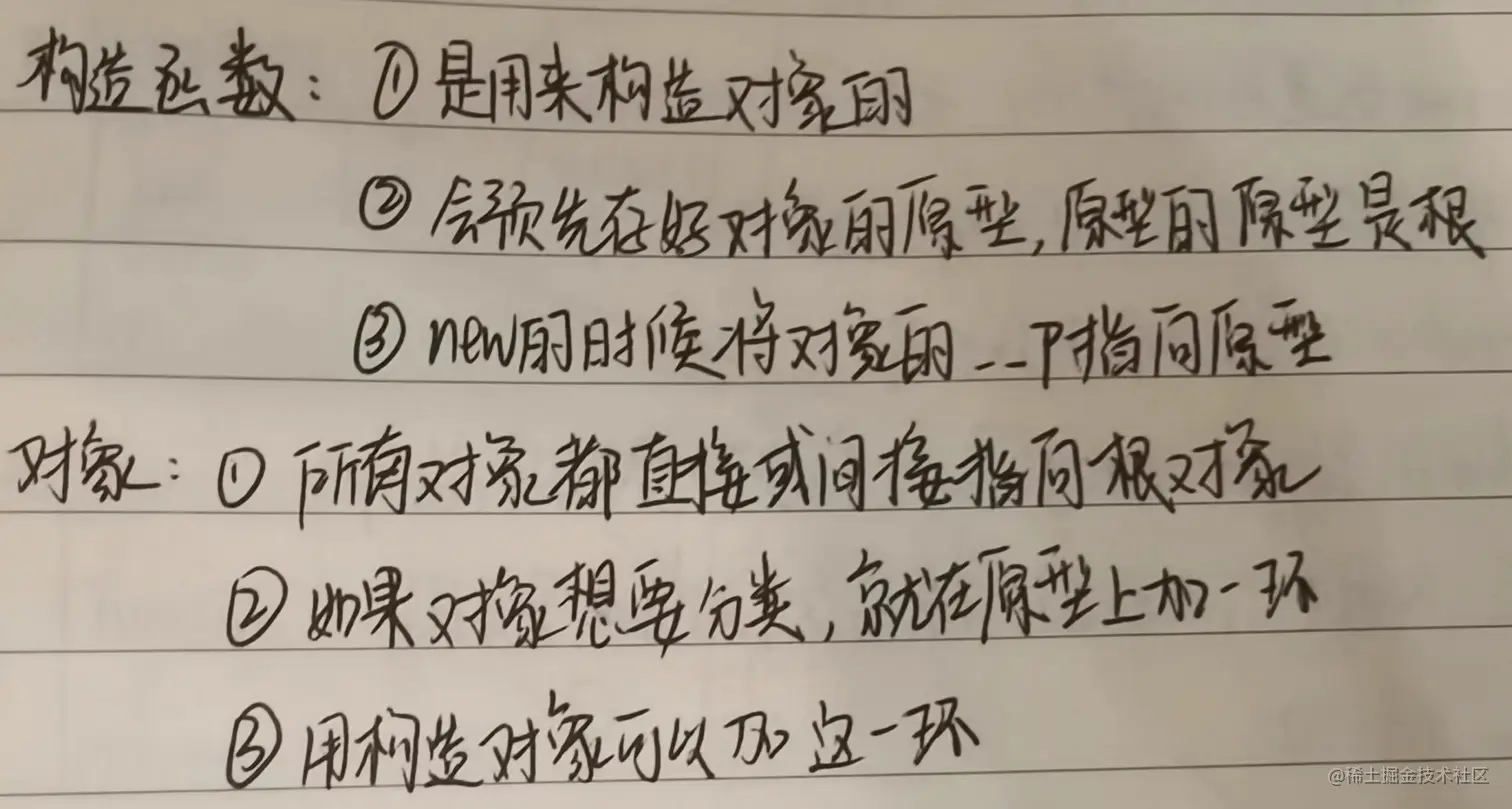 构造函数：①是用来构造对象的
②会预先存好对象的原型，原型的原型是根
③new的时候将对象的__p指向原型
对象：①所有对象都直接或间接指向根对象
②如果对象想要分类，就在原型上加一环
③用构造对象可以加这一环
@稀土掘金技术社区